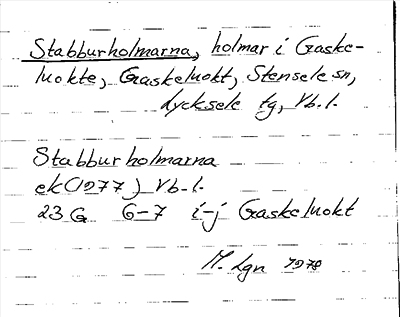 Stabburholmarna, holmar i Gaske-
luokte, Gaskeluokt, Stensele sn,
Lycksele tg, Vb.l.
Stabburholmarna
ek(1977) Vb.l.
23 G 6-7 i-j Gaskeluokt
M. Lgn 1978